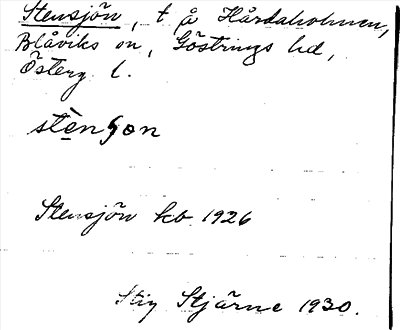 Stensjön, t å Hårdaholmen,
Blåviks sn, Göstrings hd,
Österg l.
stènʃon
Stensjön kb 1926
Stig Stjärne 1930.